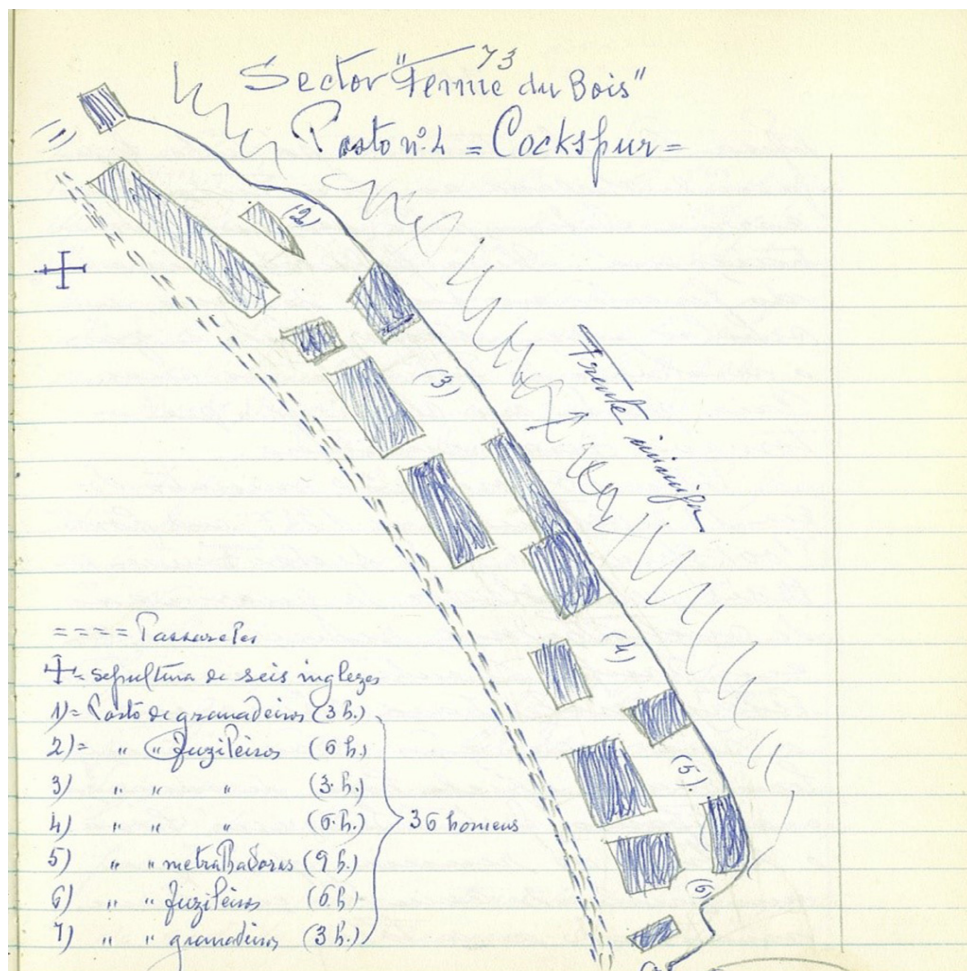 73
Sector "Ferme du Bois"
Posto nº 4 = Cockspur =
(2)
(3)
Frente inimiga
(4)
(5).
(6)
==== Passarelles
= sepultura de seis inglezes
1) = Posto de granadeiros (3 h.)
2) = " " fuzileiros (6 h.)
3) " " " (3 h.)
4) " " " (6 h.)
36 homens
5) " " metralhadoras (9 h.)
6) " " fuzileiros (6 h.)
7) " " granadeiros (3 h.)